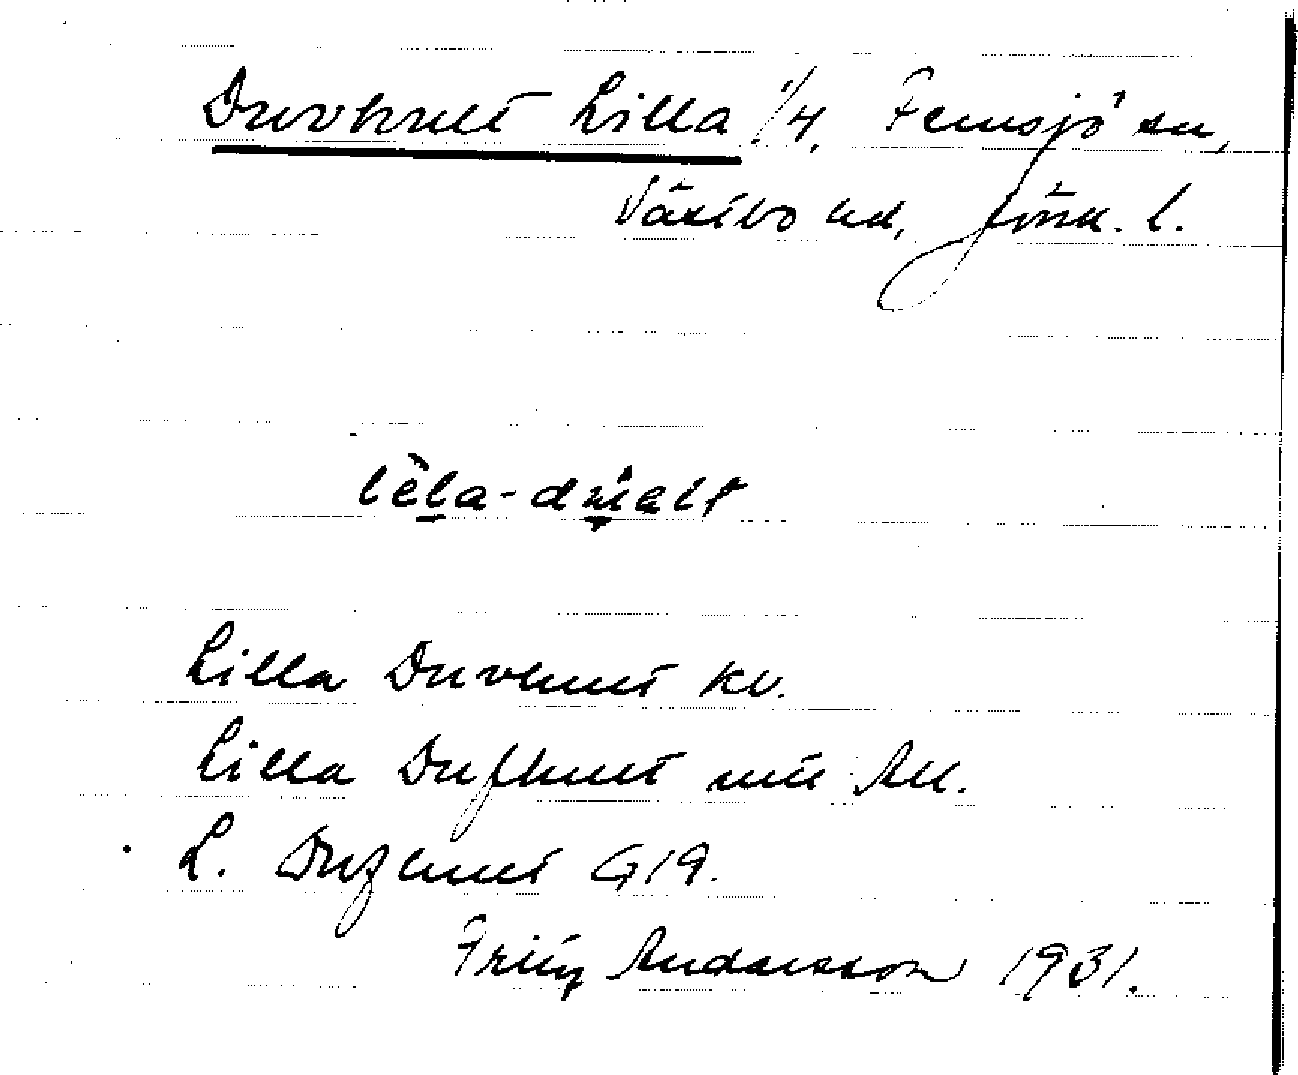 Duvhult Lilla 1/4, Femsjö sn,
Västbo hd, Jönk. l.
lèla-
Lilla Duvhult kv.
Lilla Dufhult
L. Dufhult G 19.
Fritz Andersson 1931.